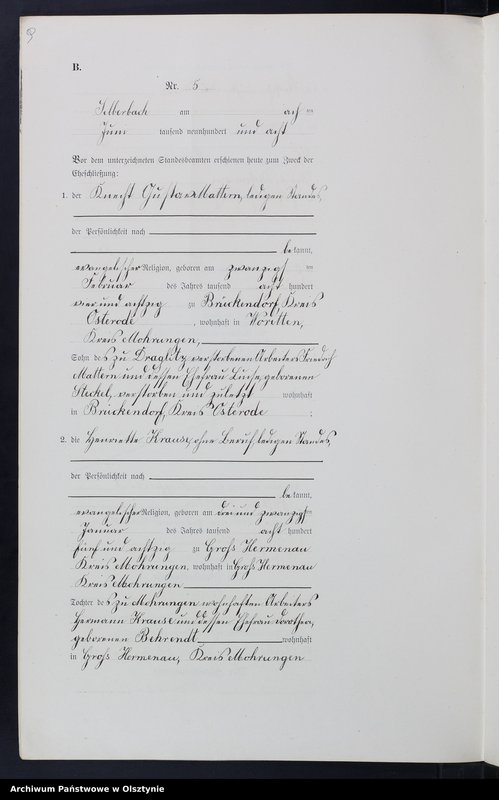 B.
Nr. 5
Silberbach am acht ten
Juni tausend neunhundert und acht
Vor dem unterzeichneten Standesbeamten erschienen heute zum Zweck der
Eheschließung:
1. der Knecht Gustav Mattern, ledigen Standes,
der Persönlichkeit nach
bekannt,
evangelischer Religion, geboren am zwanzigsten
Februar des Jahres tausend acht hundert
vier und achtzig zu Brückendorf, Kreis
Osterode, wohnhaft in Voritten,
Kreis Mohrungen,
Sohn des zu Draglitz verstorbenen Arbeiters Friedrich
Mattern und dessen Ehefrau Luise, geborenen
Steckel, verstorben und zuletzt wohnhaft
in Brückendorf, Kreis Osterode ;
2. die Henriette Krause, ohne Beruf, ledigen Standes,
der Persönlichkeit nach
bekannt,
evangelischer Religion, geboren am drei und zwanzigsten
Januar des Jahres tausend acht hundert
fünf und achtzig zu Groß Hermenau
Kreis Mohrungen, wohnhaft in Groß Hermenau
Kreis Mohrungen
Tochter des zu Mohrungen wohnhaften Arbeiters
Hermann Krause und dessen Ehefrau Dorothea,
geborenen Behrendt wohnhaft
in Groß Hermenau, Kreis Mohrungen
Archiwum Państwowe w Olsztynie